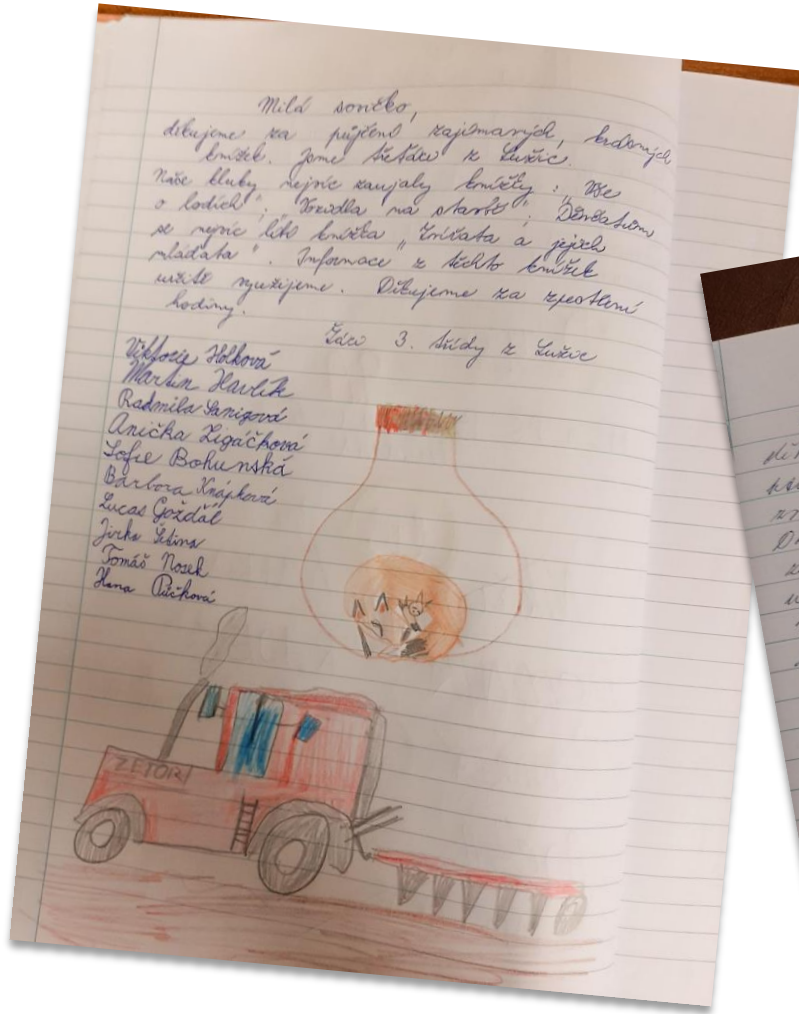 Milá sovičko,
děkujeme za půjčení zajímavých, krásných
knížek. Jsme třeťáci z Lužic.
Naše kluky nejvíc zaujaly knížky: „Vše
o lodích"; „Vozidla na stavbě"; Děvčatům
se nejvíc líbí knížka „Zvířata a jejich
mláďata". Informace z těchto knížek
určitě využijeme. Děkujeme za zpestření
hodiny.
Žáci 3. třídy z Lužic
Viktorie Holková
Martin Havlík
Radmila
Anička Zigáčková
Sofie Bohunská
Barbora Knápková
Lucas Gožďál
Jirka
Tomáš Nosek
Hana
ZETOR